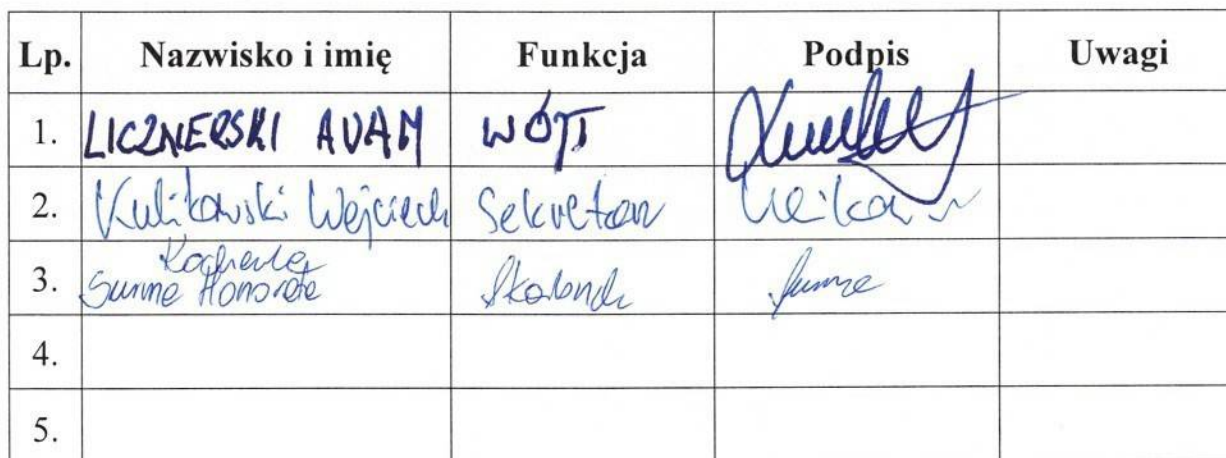 Lp. Nazwisko i imię Funkcja Podpis Uwagi
1. LICZNERSKI ADAM WÓJT
2. Kulikowski Wojciech Sekretarz
3. Honorata Skarbnik
4.
5.